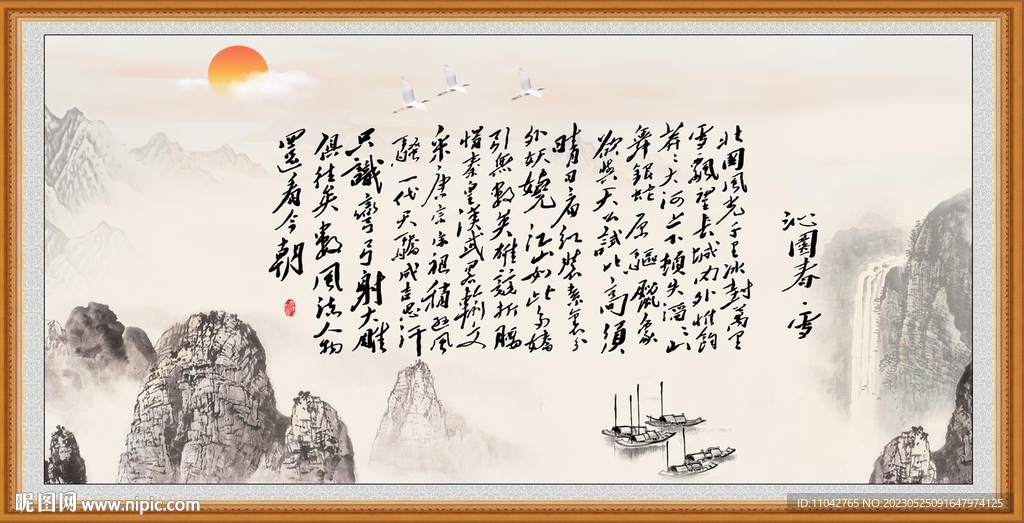 沁園春·雪
北國風光千里冰封萬里
雪飄望长城内外惟餘
莽々大河上下頓失滔々山
舞銀蛇原驅臘象
欲與天公試比高須
晴日看红裝素裹分
外妖嬈江山如此多嬌
引無數英雄競折腰
惜秦皇漢武略輸文
采唐宗宋祖稍遜風
騷一代天驕成吉思汗
只識彎弓射大雕
俱往矣數風流人物
還看今朝
昵图网 www.nipic.com
ID:11042765 NO:20230525091647974125